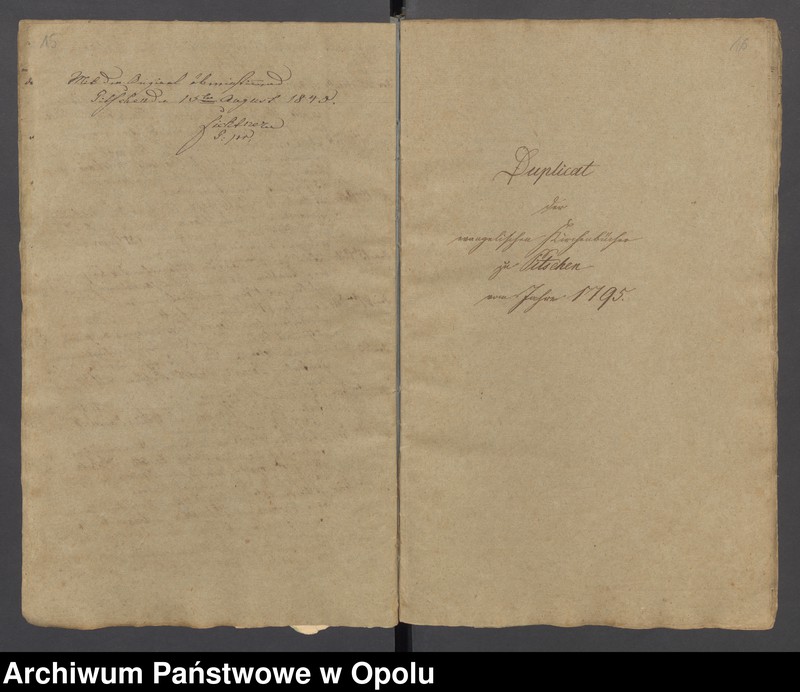 15
Mit dem Original übereinstimmend
Pitschen den 15ten August 1843.
P. m.
16
Duplicat
der
evangelischen Kirchenbücher
zu Pitschen
vom Jahre 1795.
Archiwum Państwowe w Opolu